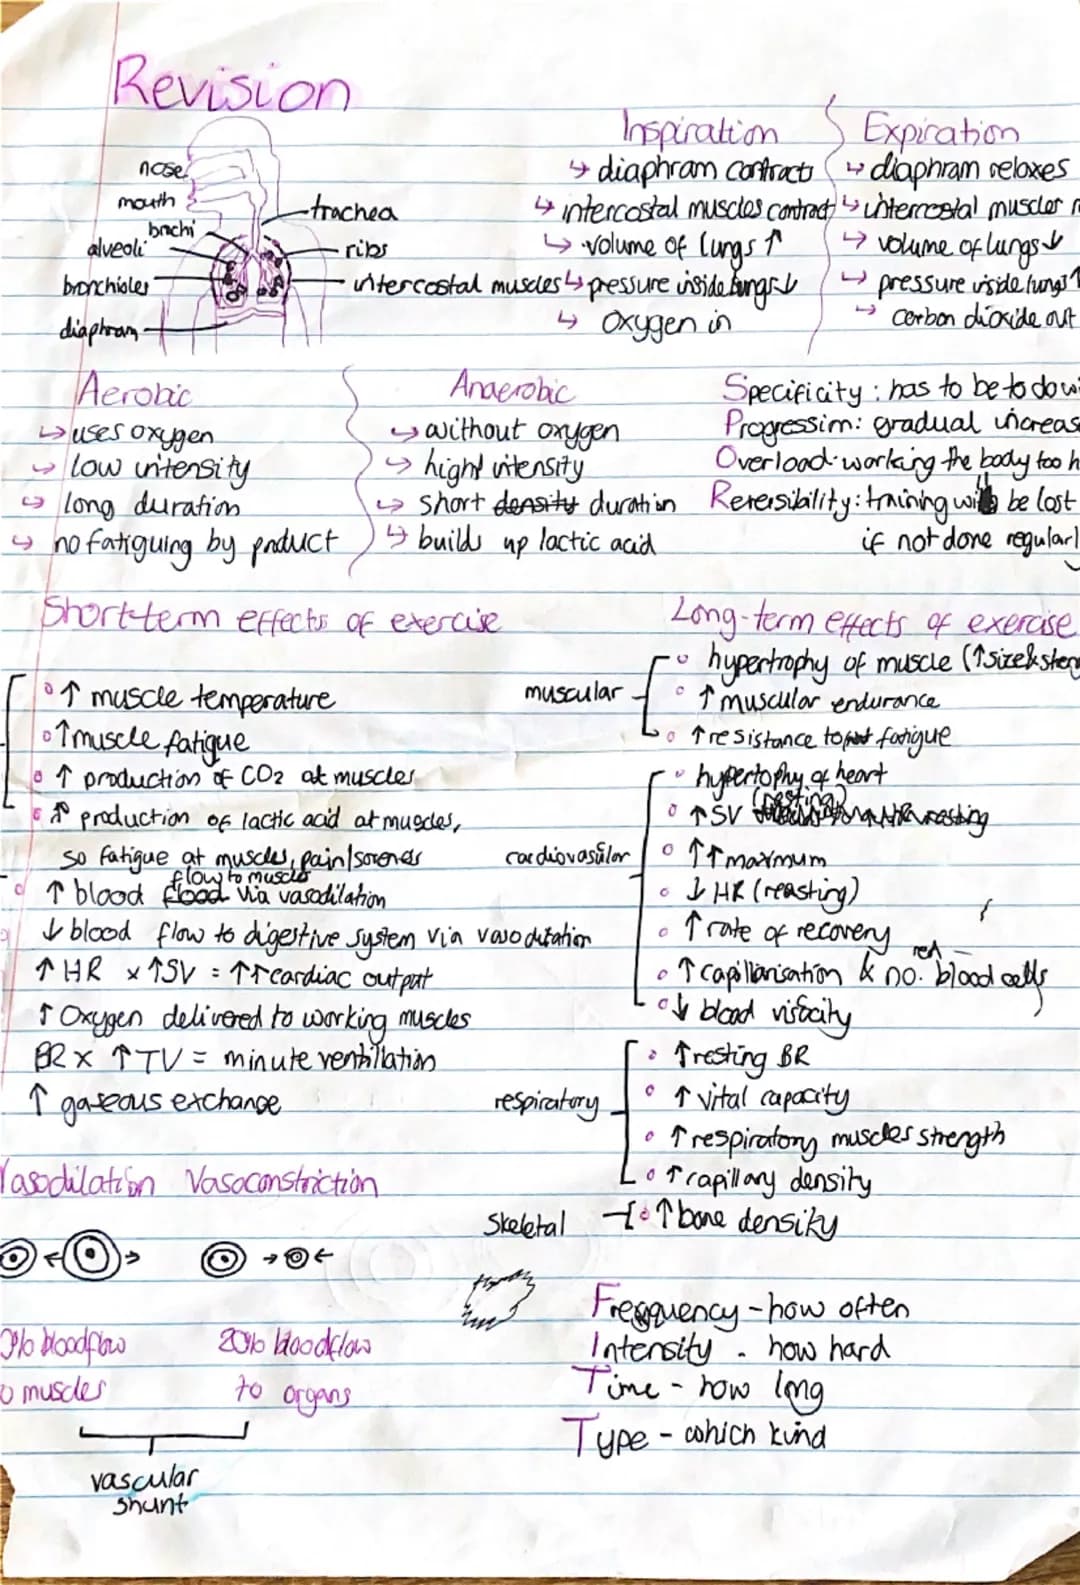 Revision
nose
mouth
brochi
alveoli
bronchioles
diaphram
trachea
ribs
intercostal muscles
Inspiration
↳ diaphram contracts
↳ intercostal muscles contract
↳ volume of lungs ↑
↳ pressure inside lungs ↓
↳ oxygen in
Expiration
↳ diaphram relaxes
↳ intercostal muscles r
↳ volume of lungs ↓
↳ pressure inside lungs ↑
↳ carbon dioxide out
Aerobic
↳ uses oxygen
↳ low intensity
↳ long duration
↳ no fatiguing by product
Anaerobic
↳ without oxygen
↳ high intensity
↳ short density duration
↳ builds up lactic acid
Specificity: has to be to do wi
Progression: gradual increas
Overload: working the body too h
Reversibility: training will be lost
if not done regularl
Short-term effects of exercise
↑ muscle temperature
↑ muscle fatigue
↑ production of CO2 at muscles
↑ production of lactic acid at muscles,
so fatigue at muscles, pain/soreness
flow to muscles
↑ blood flood via vasodilation
↓ blood flow to digestive system via
↑ HR x ↑SV = ↑↑cardiac output
↑ Oxygen delivered to working muscles
BR x ↑TV = minute ventillation
↑ gaseous exchange
Long-term effects of exercise
muscular
hypertrophy of muscle (↑size & stren
↑ muscular endurance
↑ resistance to fatigue
cardiovasular
hypertophy of heart
(resting)
↑ SV resting
↑↑ maxmum
↓ HR (reasting)
↑ rate of recovery
red
↑ capillarisation & no. blood cells
↓ blood viscity
respiratory
↑ resting BR
↑ vital capacity
↑ respiratory muscles strength
↑ capillary density
Skeletal
↑ bone density
Vasodilation Vasoconstriction
0% bloodflow
o muscles
20% bloodflow
to organs
vascular
shunt
Freqquency - how often
Intensity - how hard
Time - how long
Type - which kind